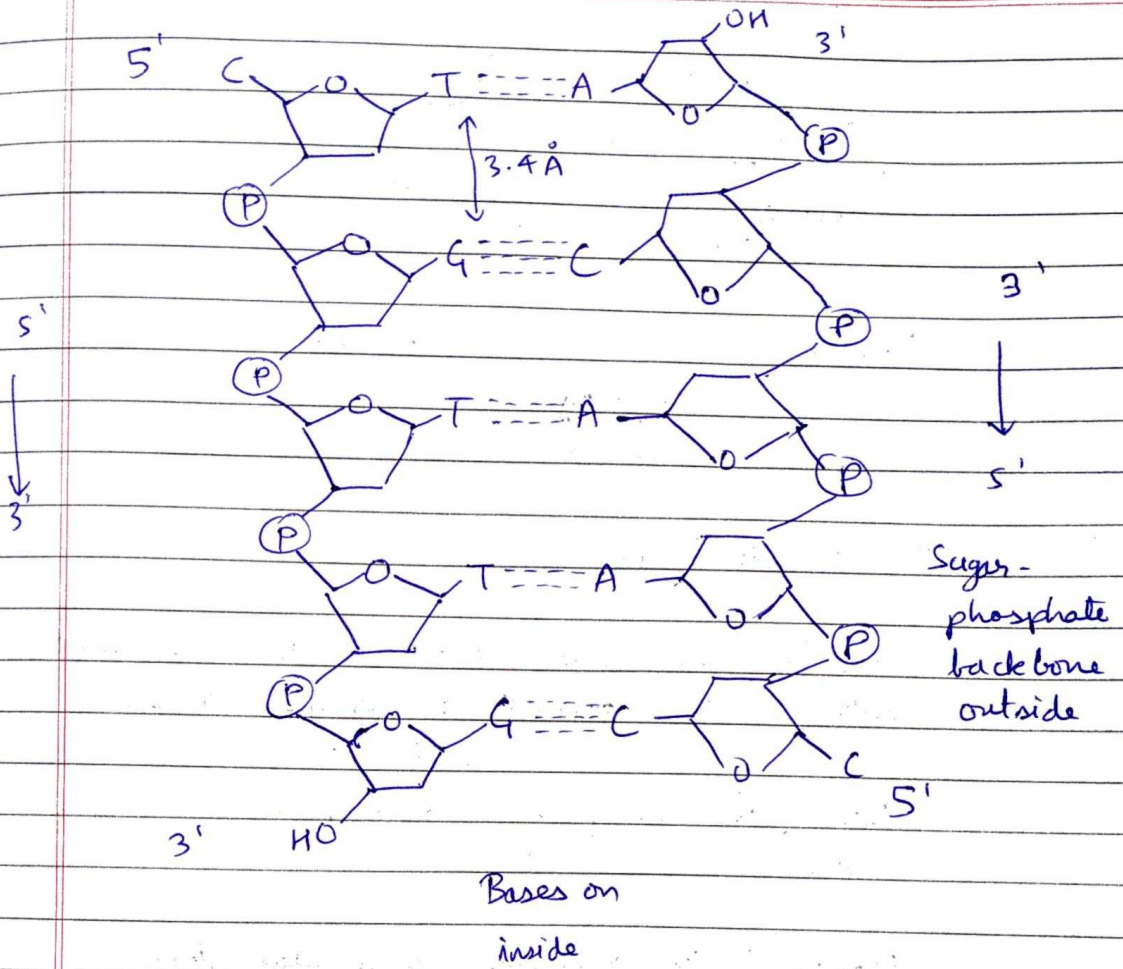 OH
5' 3'
C O T A
O
P
3.4 Å
P
O G C
3'
O
5' P
P
O T A
O P 5'
3'
P
O T A Sugar-
O phosphate
P backbone
P outside
O G C
O C
5'
3' HO
Bases on
inside